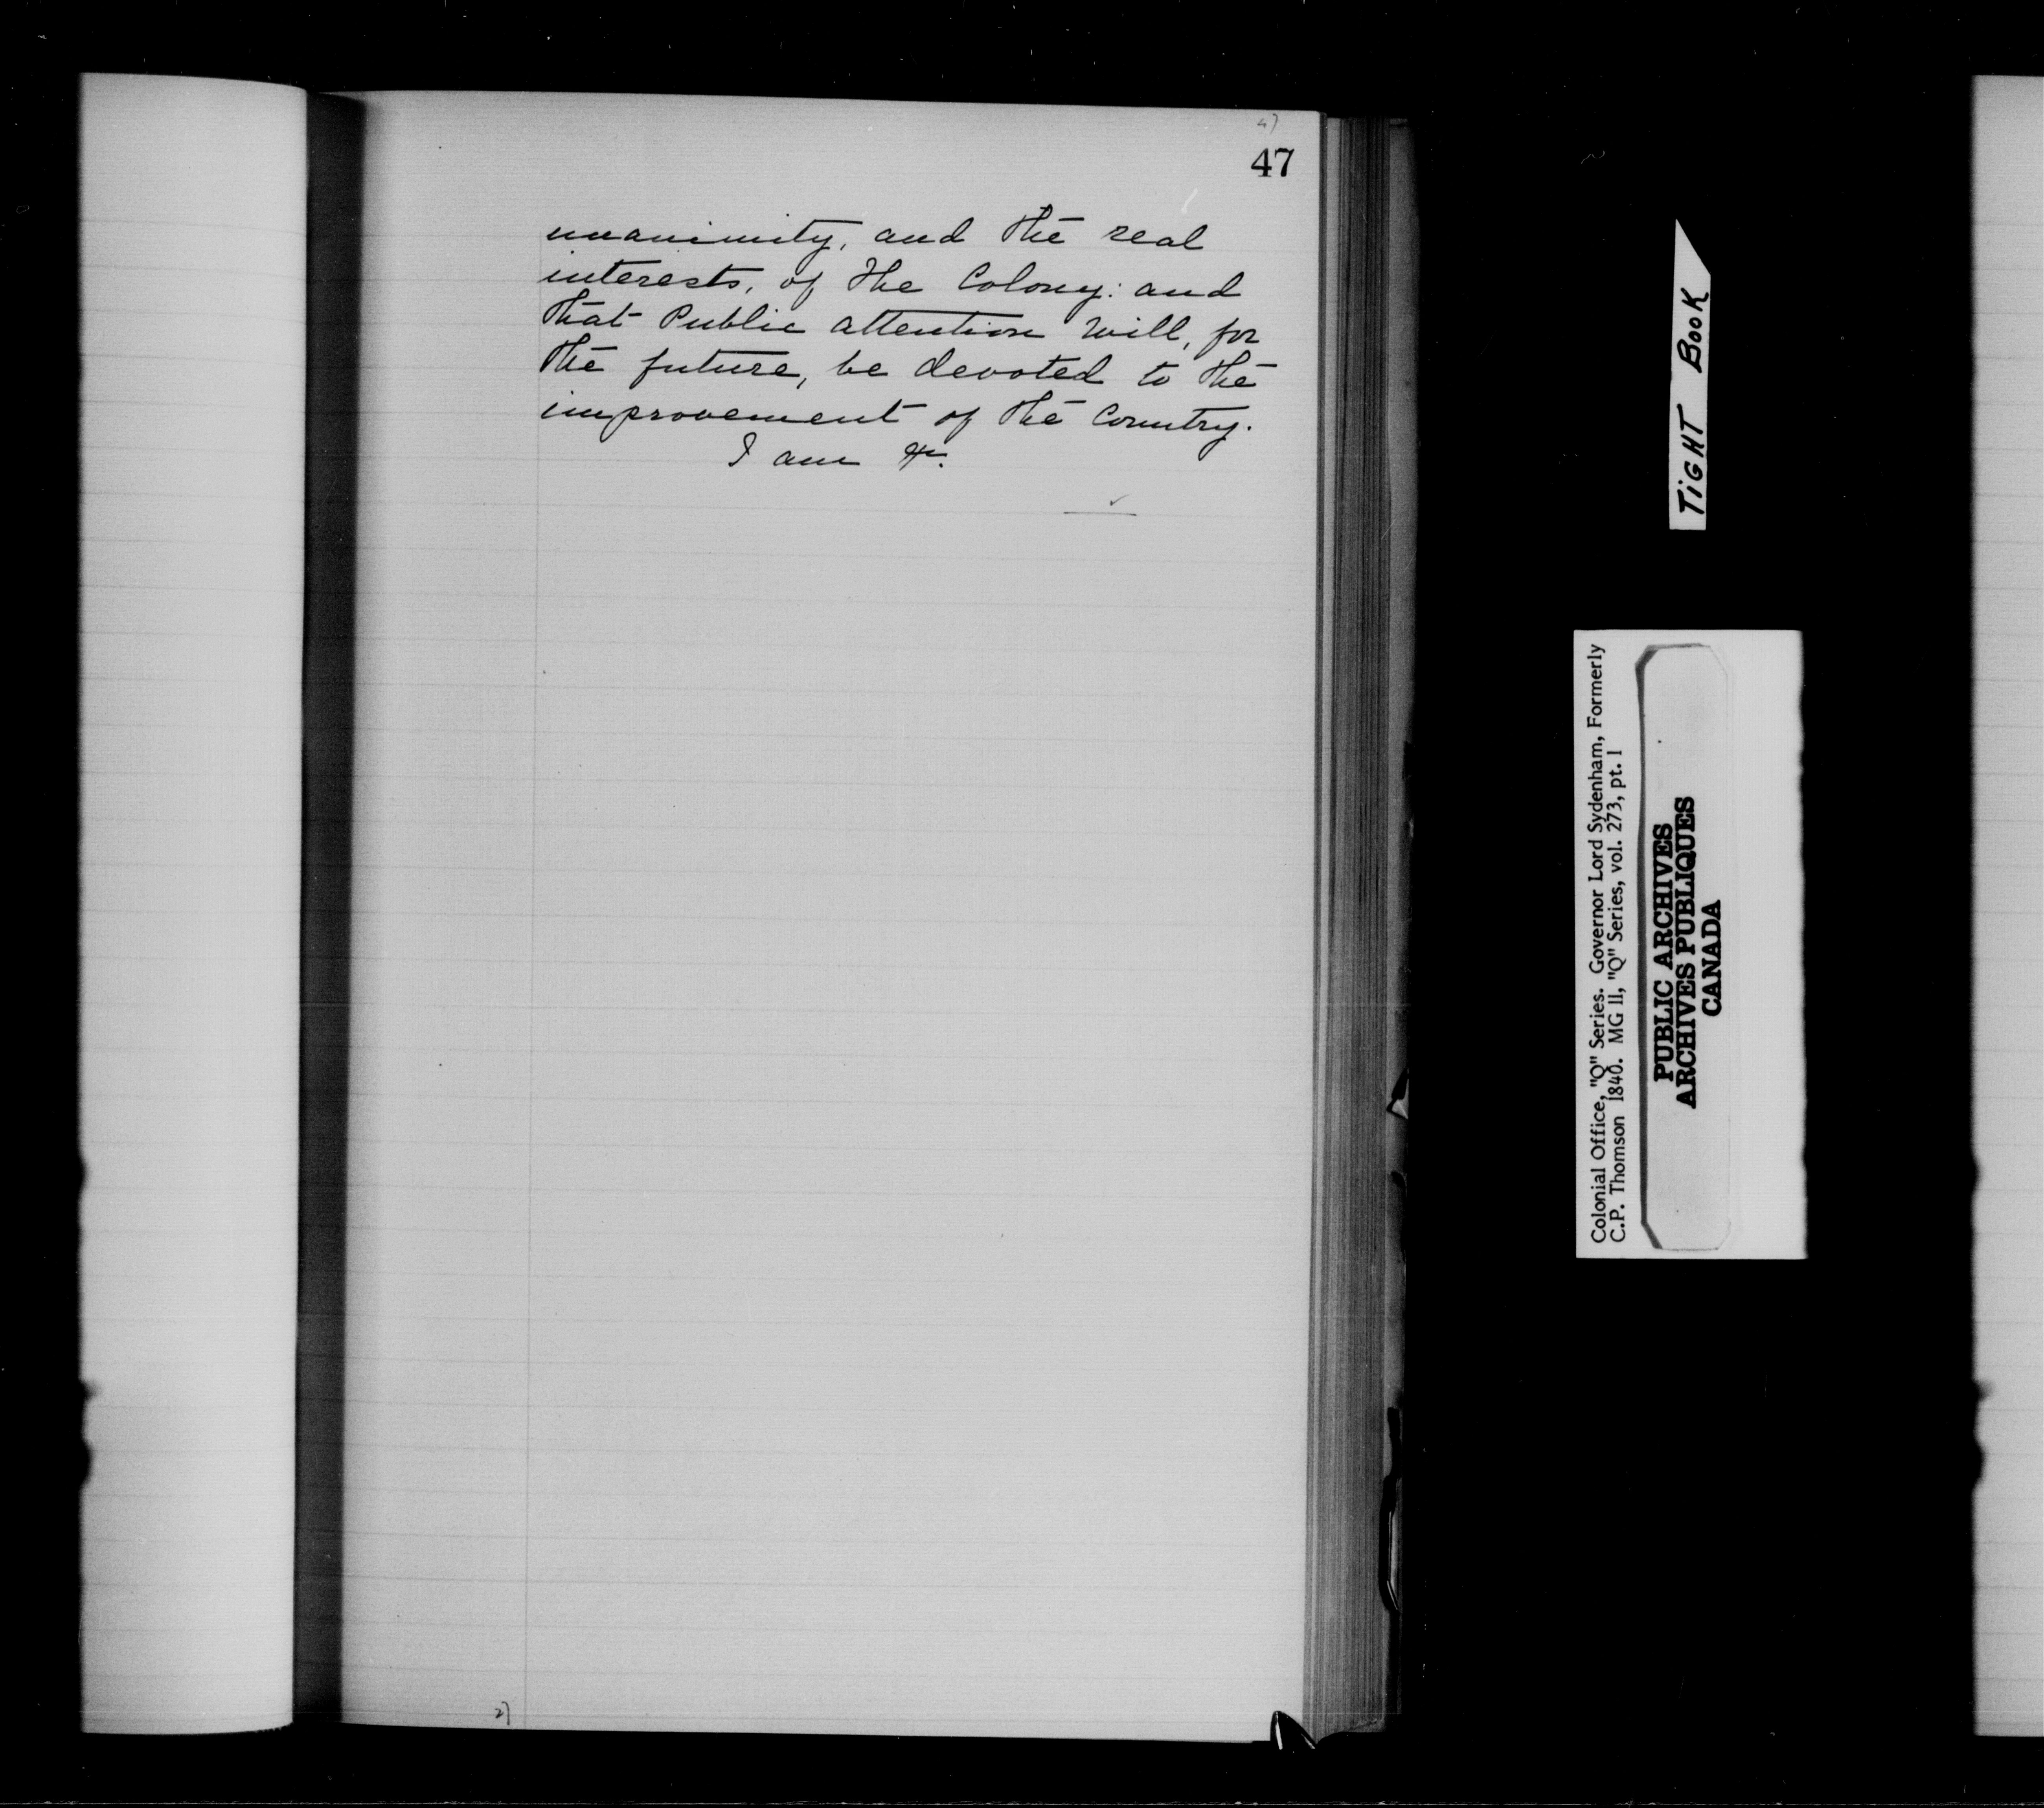 47
47
unanimity, and the real
interests, of the Colony: and
that Public attention will, for
the future, be devoted to the
improvement of the Country.
I am &c.
27
TIGHT BOOK
Colonial Office, "Q" Series. Governor Lord Sydenham, Formerly
C.P. Thomson 1840. MG 11, "Q" Series, vol. 273, pt. 1
PUBLIC ARCHIVES
ARCHIVES PUBLIQUES
CANADA